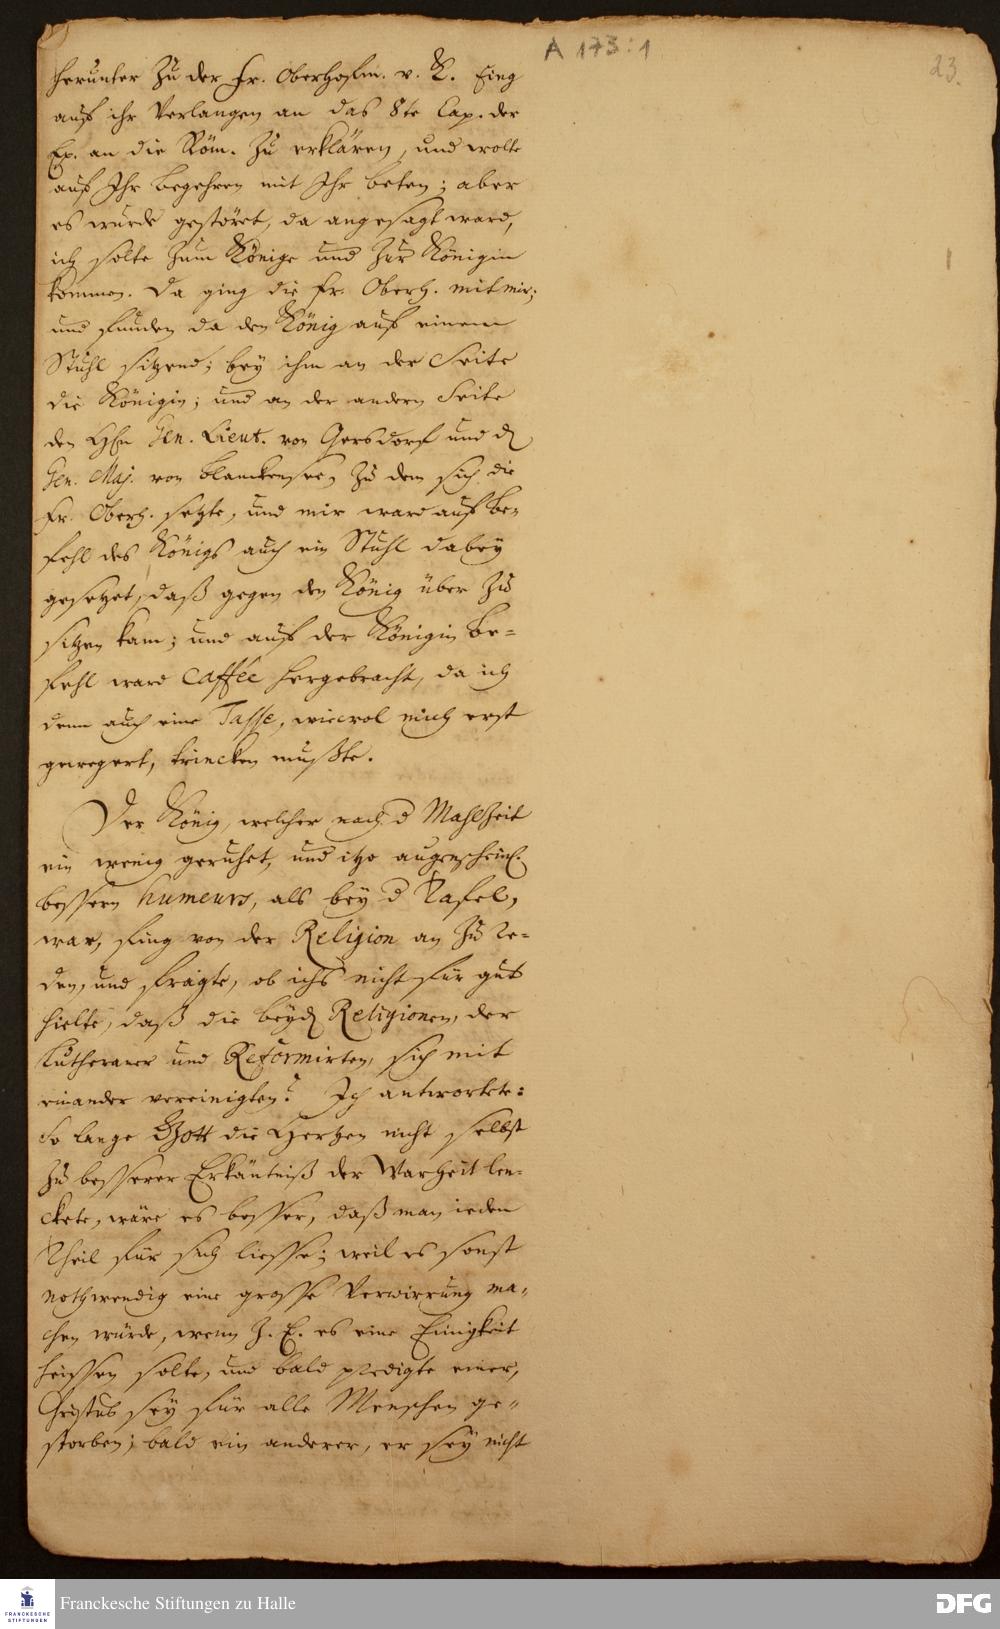 A 173:1
23.
herunter zu der Fr. Oberhofm. v. K. Fing
auf ihr Verlangen an das 8te Cap. der
Ep. an die Röm. zu erklären, und wolte
auf Ihr begehren mit Ihr beten; aber
es wurde gestöret, da angesagt ward,
ich solte zum Könige und zur Königin
kommen. Da ging die Fr. Oberh. mit mir;
und funden da den König auf einem
Stuhl sitzend; bey ihm an der Seite
die Königin; und an der andern Seite
den Hn Gen. Lieut. von Gersdorf und d
Gen. Maj. von Blanckensee, zu dem sich die
Fr. Oberh. setzte, und mir ward auf Be-
fehl des Königs auch ein Stuhl dabey
gesetzet, daß gegen den König über zu
sitzen kam; und auf der Königin Be-
fehl ward Caffée hergebracht, da ich
denn auch eine Tasse, wiewol mich erst
gewegert, trincken mußte.
Der König, welcher nach d Mahlzeit
ein wenig geruhet, und itzo augenscheinl.
bessern humeurs, als bey d Tafel,
war, fing von der Religion an zu re-
den, und fragte, ob ichs nicht für gut
hielte, daß die beyd Religionen, der
Lutheraner und Reformirten, sich mit
einander vereinigten? Ich antwortete:
So lange Gott die Hertzen nicht selbst
zu besserer Erkäntniß der Warheit len-
ckete, wäre es besser, daß man ieden
Theil für sich liesse; weil es sonst
nothwendig eine grosse Verwirrung ma-
chen würde, wenn z. E. es eine Einigkeit
heissen solte, und bald predigte einer,
Christus sey für alle Menschen ge-
storben; bald ein anderer, er sey nicht
FRANCKESCHE
STIFTUNGEN
Franckesche Stiftungen zu Halle
DFG